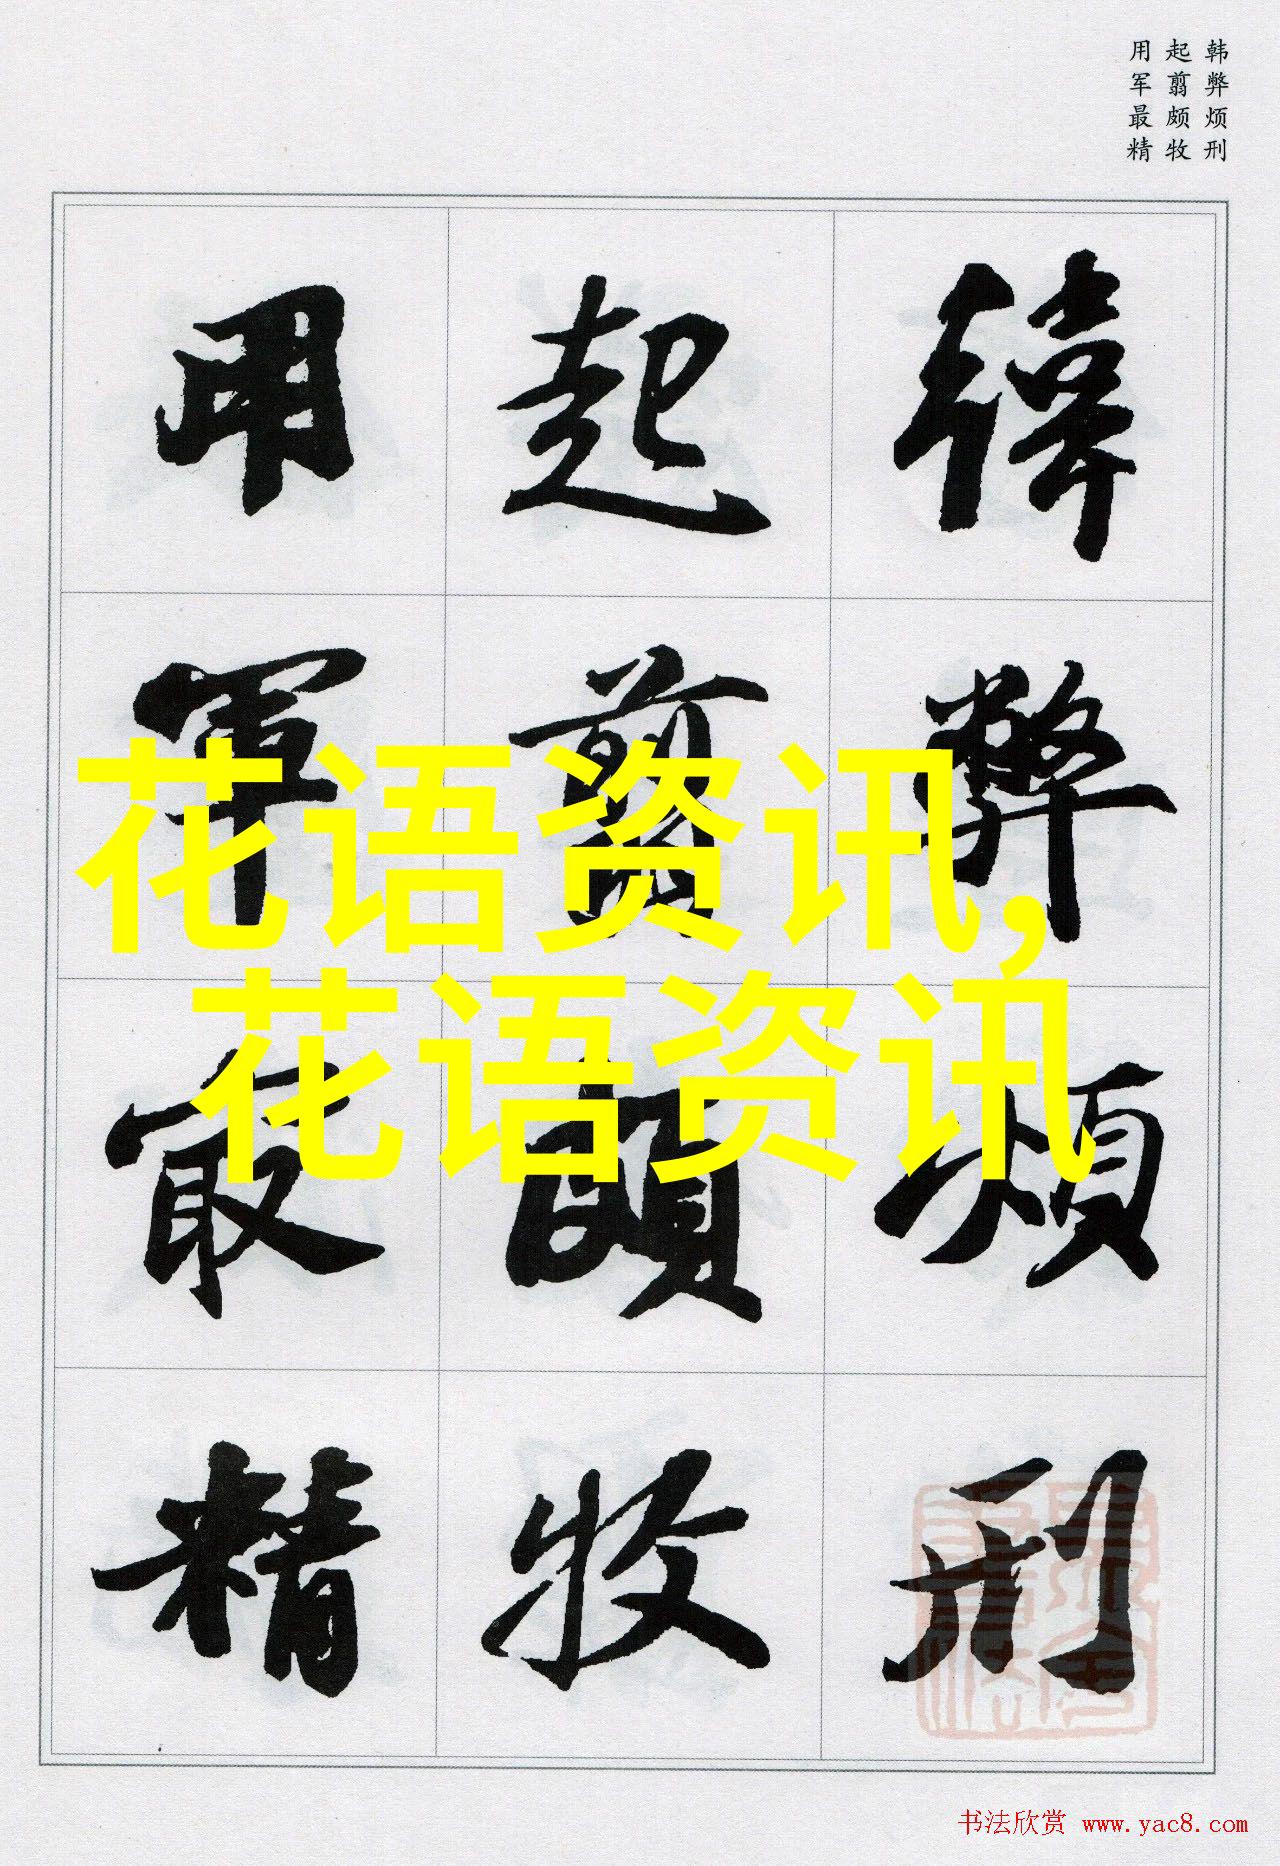 韩弊烦刑
起翦颇牧
用军最精
韓弊煩刑
起翦頗牧
用軍最精
花语资讯,
花语资讯
书法欣赏 www.yac8.com